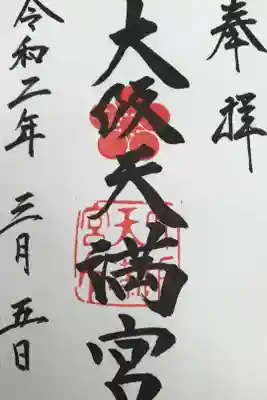 奉拝
大阪天満宮
令和二年三月五日